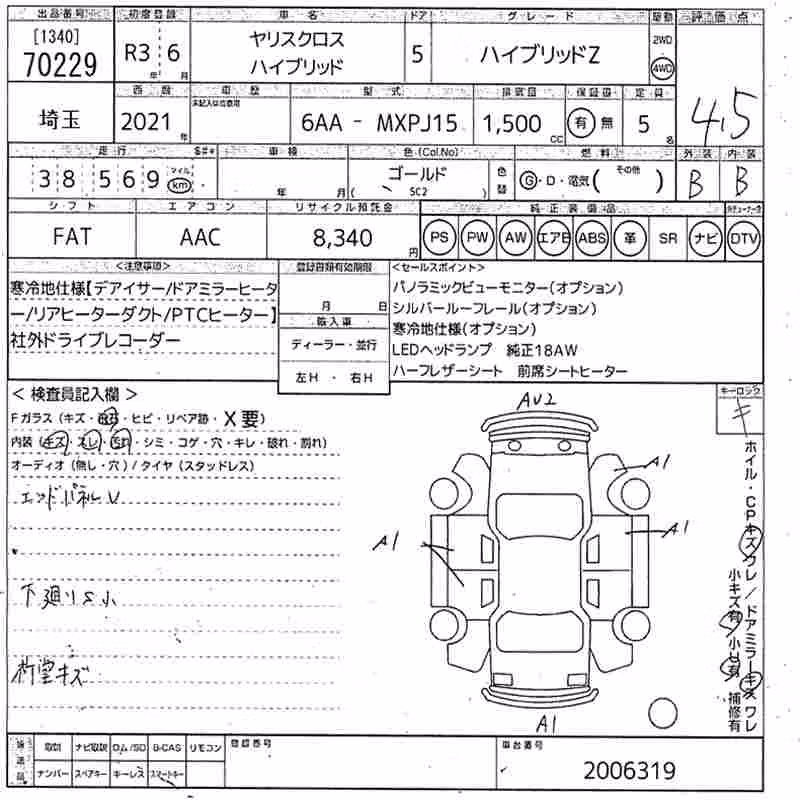 出品番号 初度登録 車名 ドア グレード 駆動 評価点
[1340]
70229
R3 年 6 月
ヤリスクロス
ハイブリッド
5
ハイブリッドZ
2WD
4WD
4.5
西暦 車歴 型式 排気量 保証書 定員
埼玉
2021 年
未記入は自家用
6AA - MXPJ15
1,500 cc
有 無
5 名
走行 $#* 車検 色(Col.No) 燃料 外装 内装
38569
マイル
km
年 月(
ゴールド
SC2
)
色替
G・D・電気( その他 )
B B
シフト エアコン リサイクル預託金 純正装備品
FAT AAC 8,340 円
PS PW AW エアB ABS 革 SR ナビ DTV
<注意事項>
寒冷地仕様【デアイサー/ドアミラーヒータ
ー/リアヒーターダクト/PTCヒーター】
社外ドライブレコーダー
登録書類有効期限
月 日
輸入車
ディーラー・並行
左H ・ 右H
<セールスポイント>
パノラミックビューモニター(オプション)
シルバールーフレール(オプション)
寒冷地仕様(オプション)
LEDヘッドランプ 純正18AW
ハーフレザーシート 前席シートヒーター
< 検査員記入欄 >
Fガラス(キズ・飛石・ヒビ・リペア跡・X要)
内装(キズ・スレ・汚れ・シミ・コゲ・穴・キレ・破れ・割れ)
オーディオ(無し・穴)/タイヤ(スタッドレス)
エンドパネルU
下廻りS小
AU2
A1
A1
A1
A1
キーロック
キ
ホイル・CPキズワレ/ドアミラーキズワレ
小キズ有 小U有 補修有
後送品
取説 ナビ取説 ロム/SD B-CAS リモコン
ナンバー スペアキー キーレス スマートキー
登録番号
車台番号
2006319